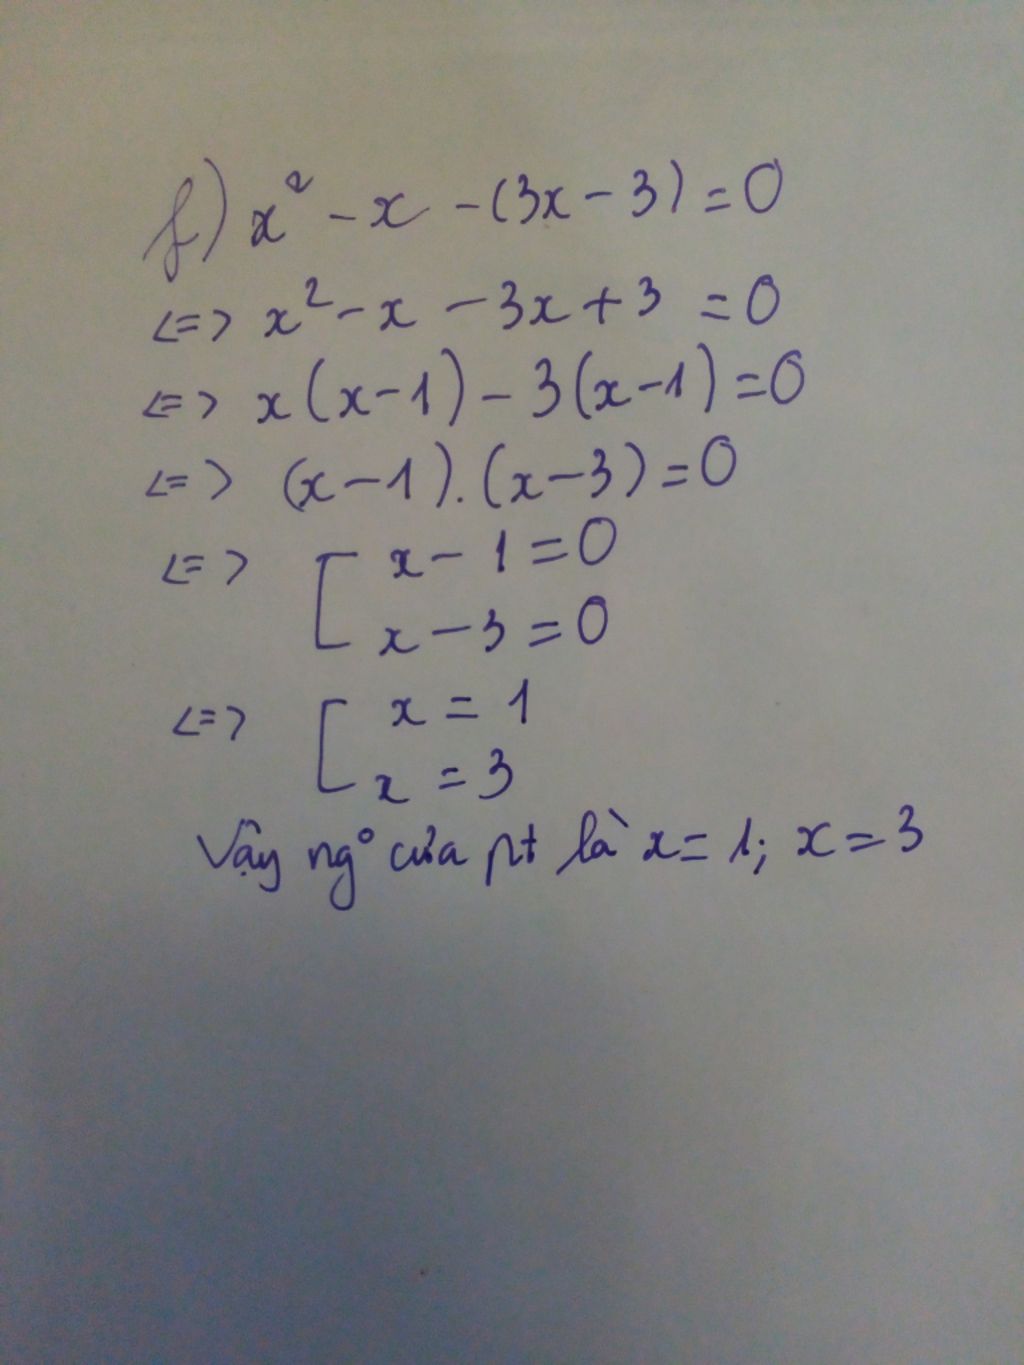 f) x² - x - (3x - 3) = 0
<=> x² - x - 3x + 3 = 0
<=> x(x - 1) - 3(x - 1) = 0
<=> (x - 1).(x - 3) = 0
<=> [ x - 1 = 0
x - 3 = 0
<=> [ x = 1
x = 3
Vậy ng° của pt là x = 1; x = 3